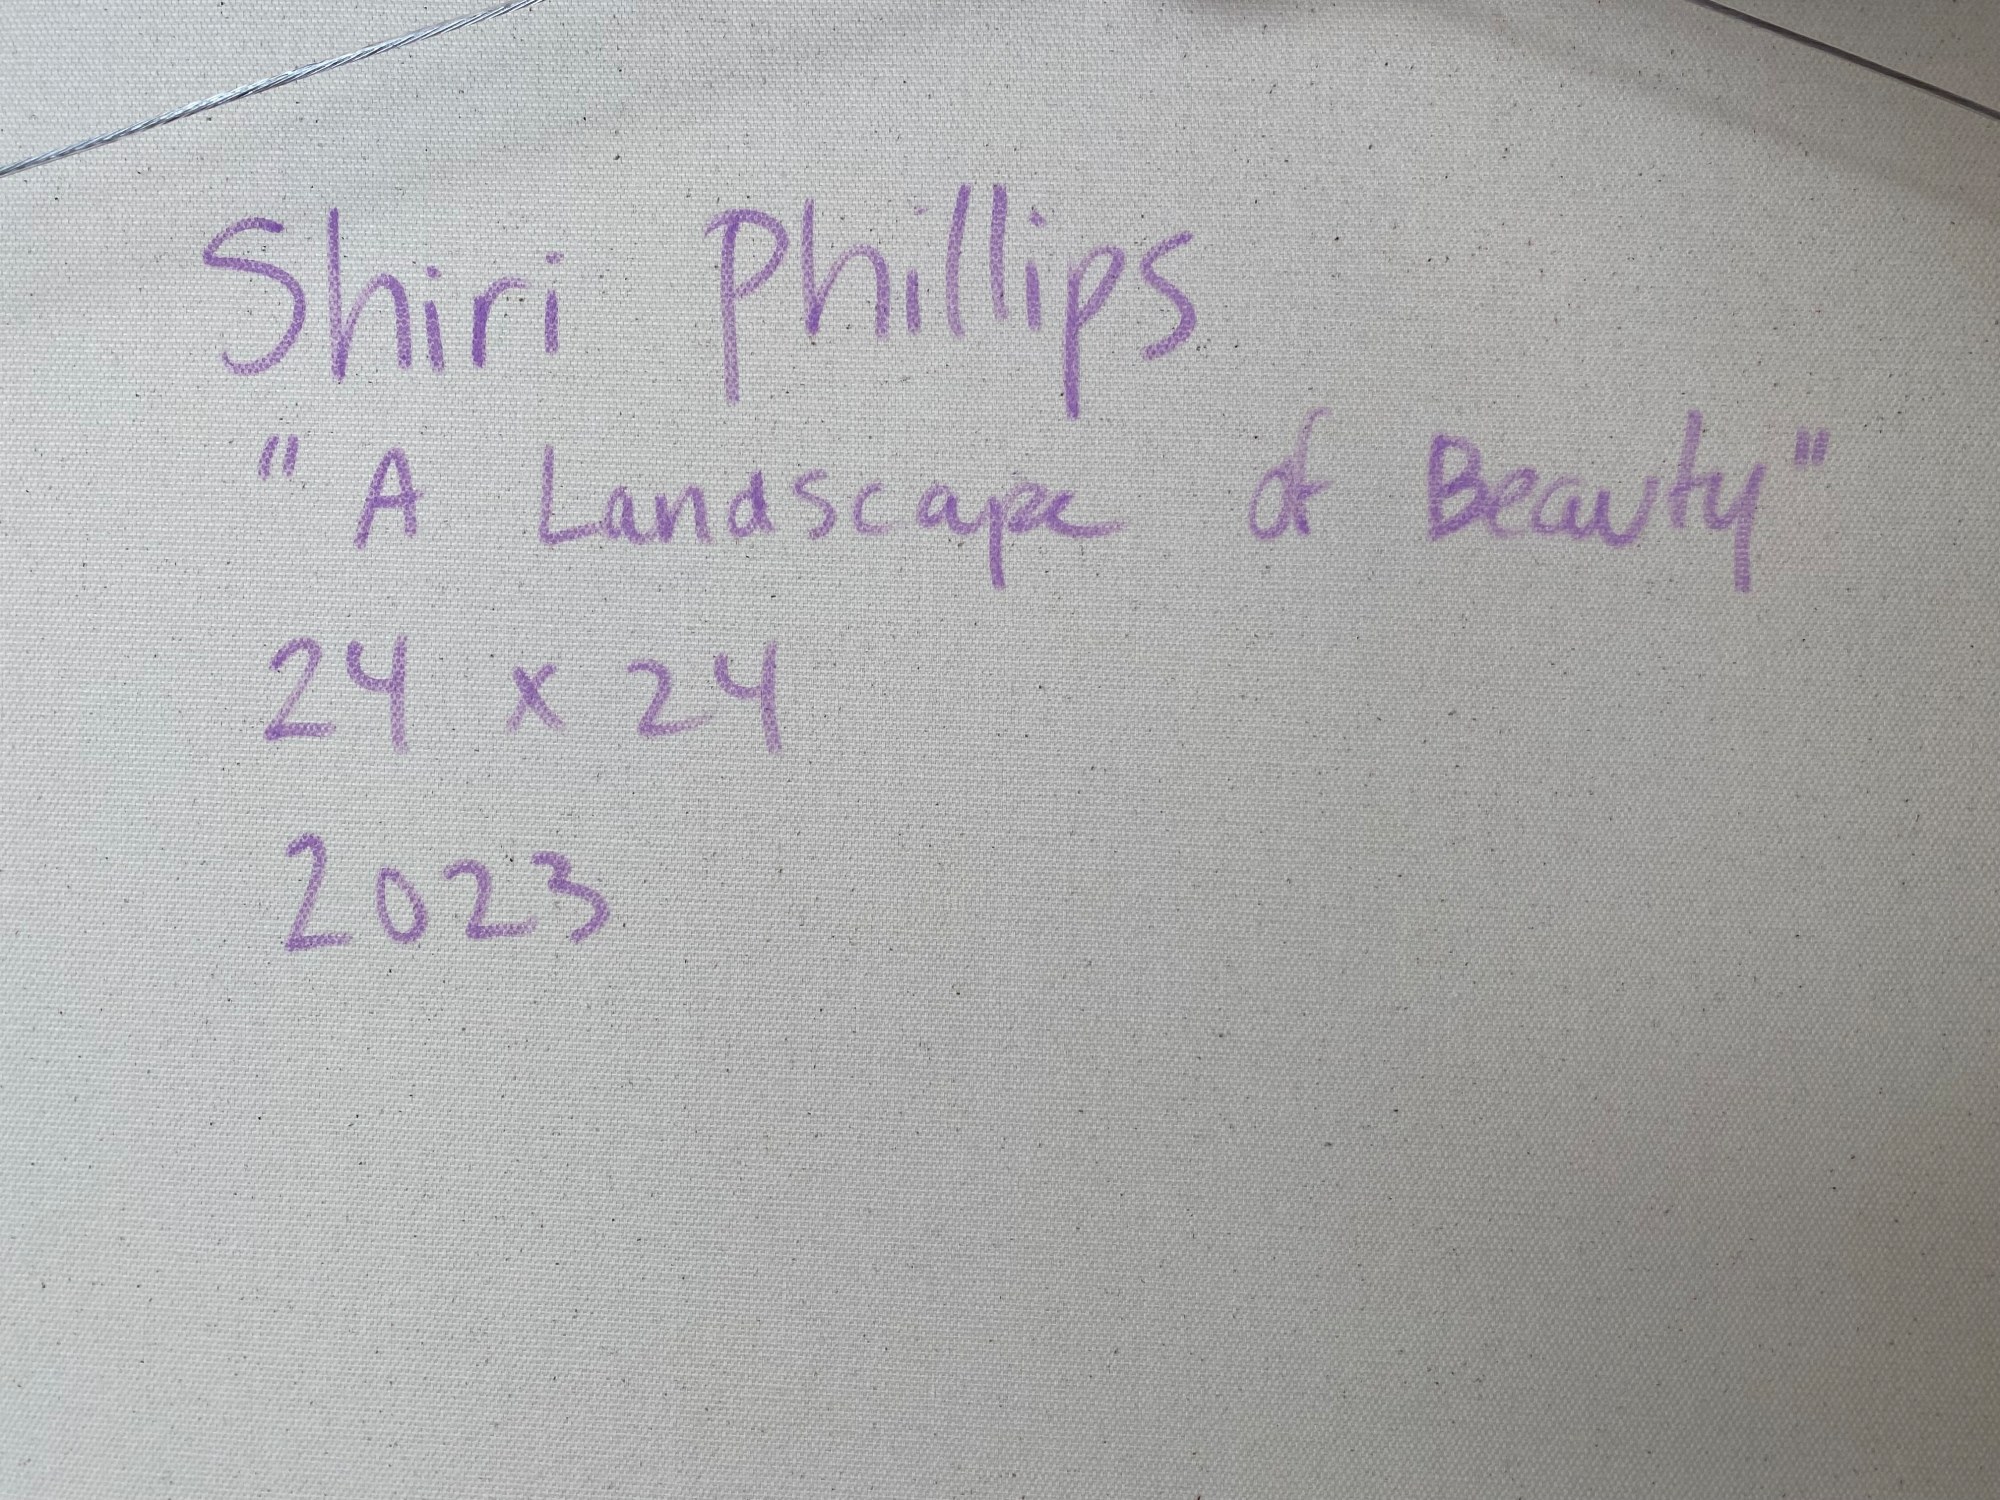 Shiri Phillips
"A Landscape of Beauty"
24 x 24
2023